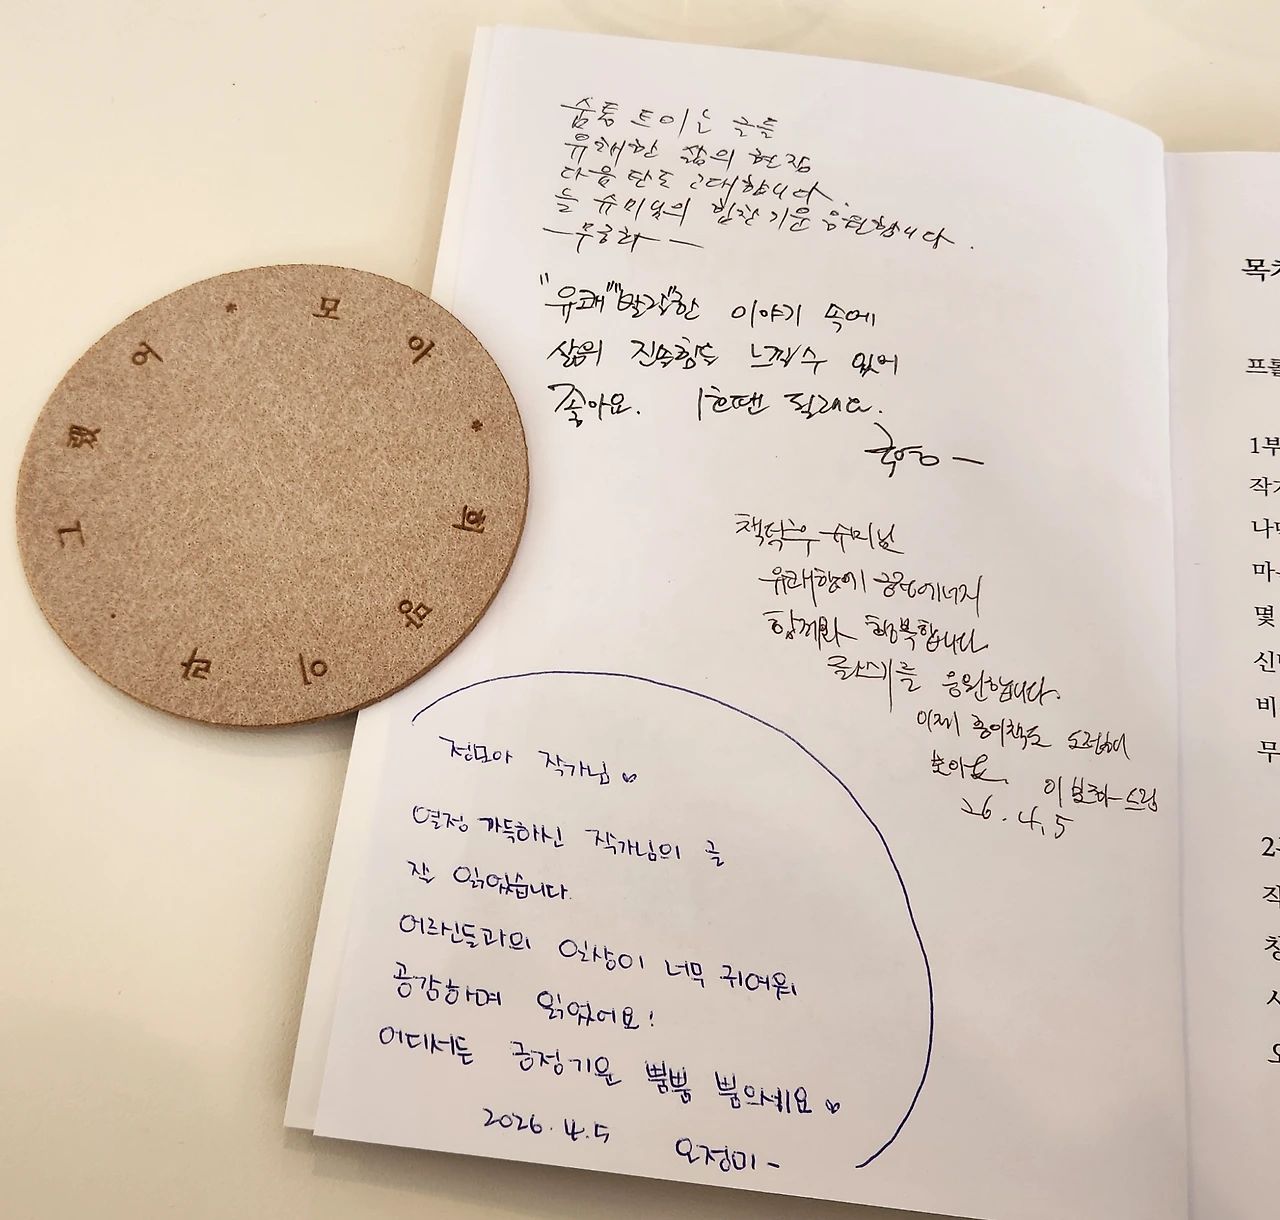 숨통 트이는 글들
유쾌한 삶의 현장
다음 탄도 고대합니다.
늘 슈미님의 힘찬 기운 응원합니다.
-무궁화-
"유쾌""발랄"한 이야기 속에
삶의 진솔함도 느낄수 있어
좋아요.
책덕후 슈미님
유쾌함에 긍정에너지
함께라 행복합니다
글쓰기를 응원합니다.
이제 종이책도 도전해
보아요. 이보화 드림
26.4.5
정모아 작가님♡
열정 가득하신 작가님의 글
잘 읽었습니다.
어르신들과의 일상이 너무 귀여워
공감하며 읽었어요!
어디서든 긍정기운 뿜뿜 뿜으세요♡
2026.4.5 오정미-
모아
희망이라
그랬어
목차
프롤
1부
작가
나만
마
몇
신
비
무
2
작
창
사
오